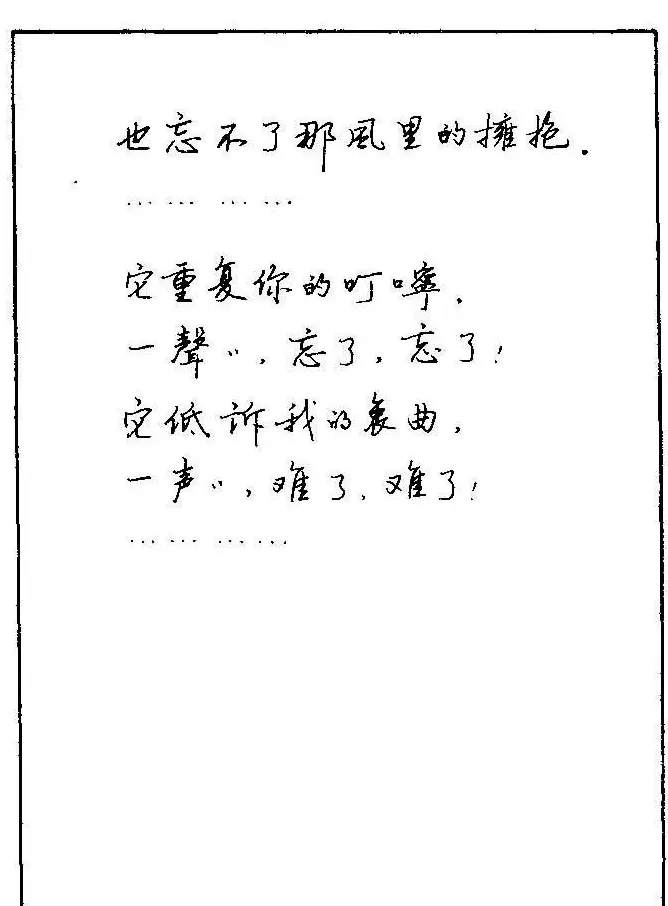 也忘不了那風里的擁抱.
… … … …
它重复你的叮嚀,
一聲〃,忘了,忘了!
它低诉我的哀曲,
一声〃,难了,难了!
… … … …